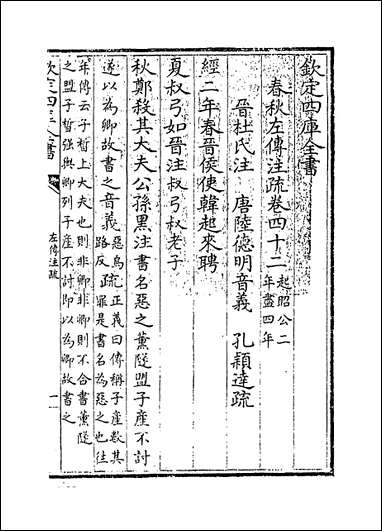 欽定四庫全書
春秋左傳注疏卷四十二起昭公二
年盡四年
晉杜氏注 唐陸德明音義 孔穎達疏
經二年春晉侯使韓起來聘
夏叔弓如晉注叔弓叔老子
秋鄭殺其大夫公孫黑注書名惡之薰隧盟子產不討
遂以為卿故書之音義惡烏路反疏正義曰傳稱子產數其罪是書名為惡之也往
年傳云子晳上大夫也則非卿非卿則不合書薰隧
之盟子晳強與卿列子產不討即以為卿故書之
欽定四庫全書
左傳注疏
一